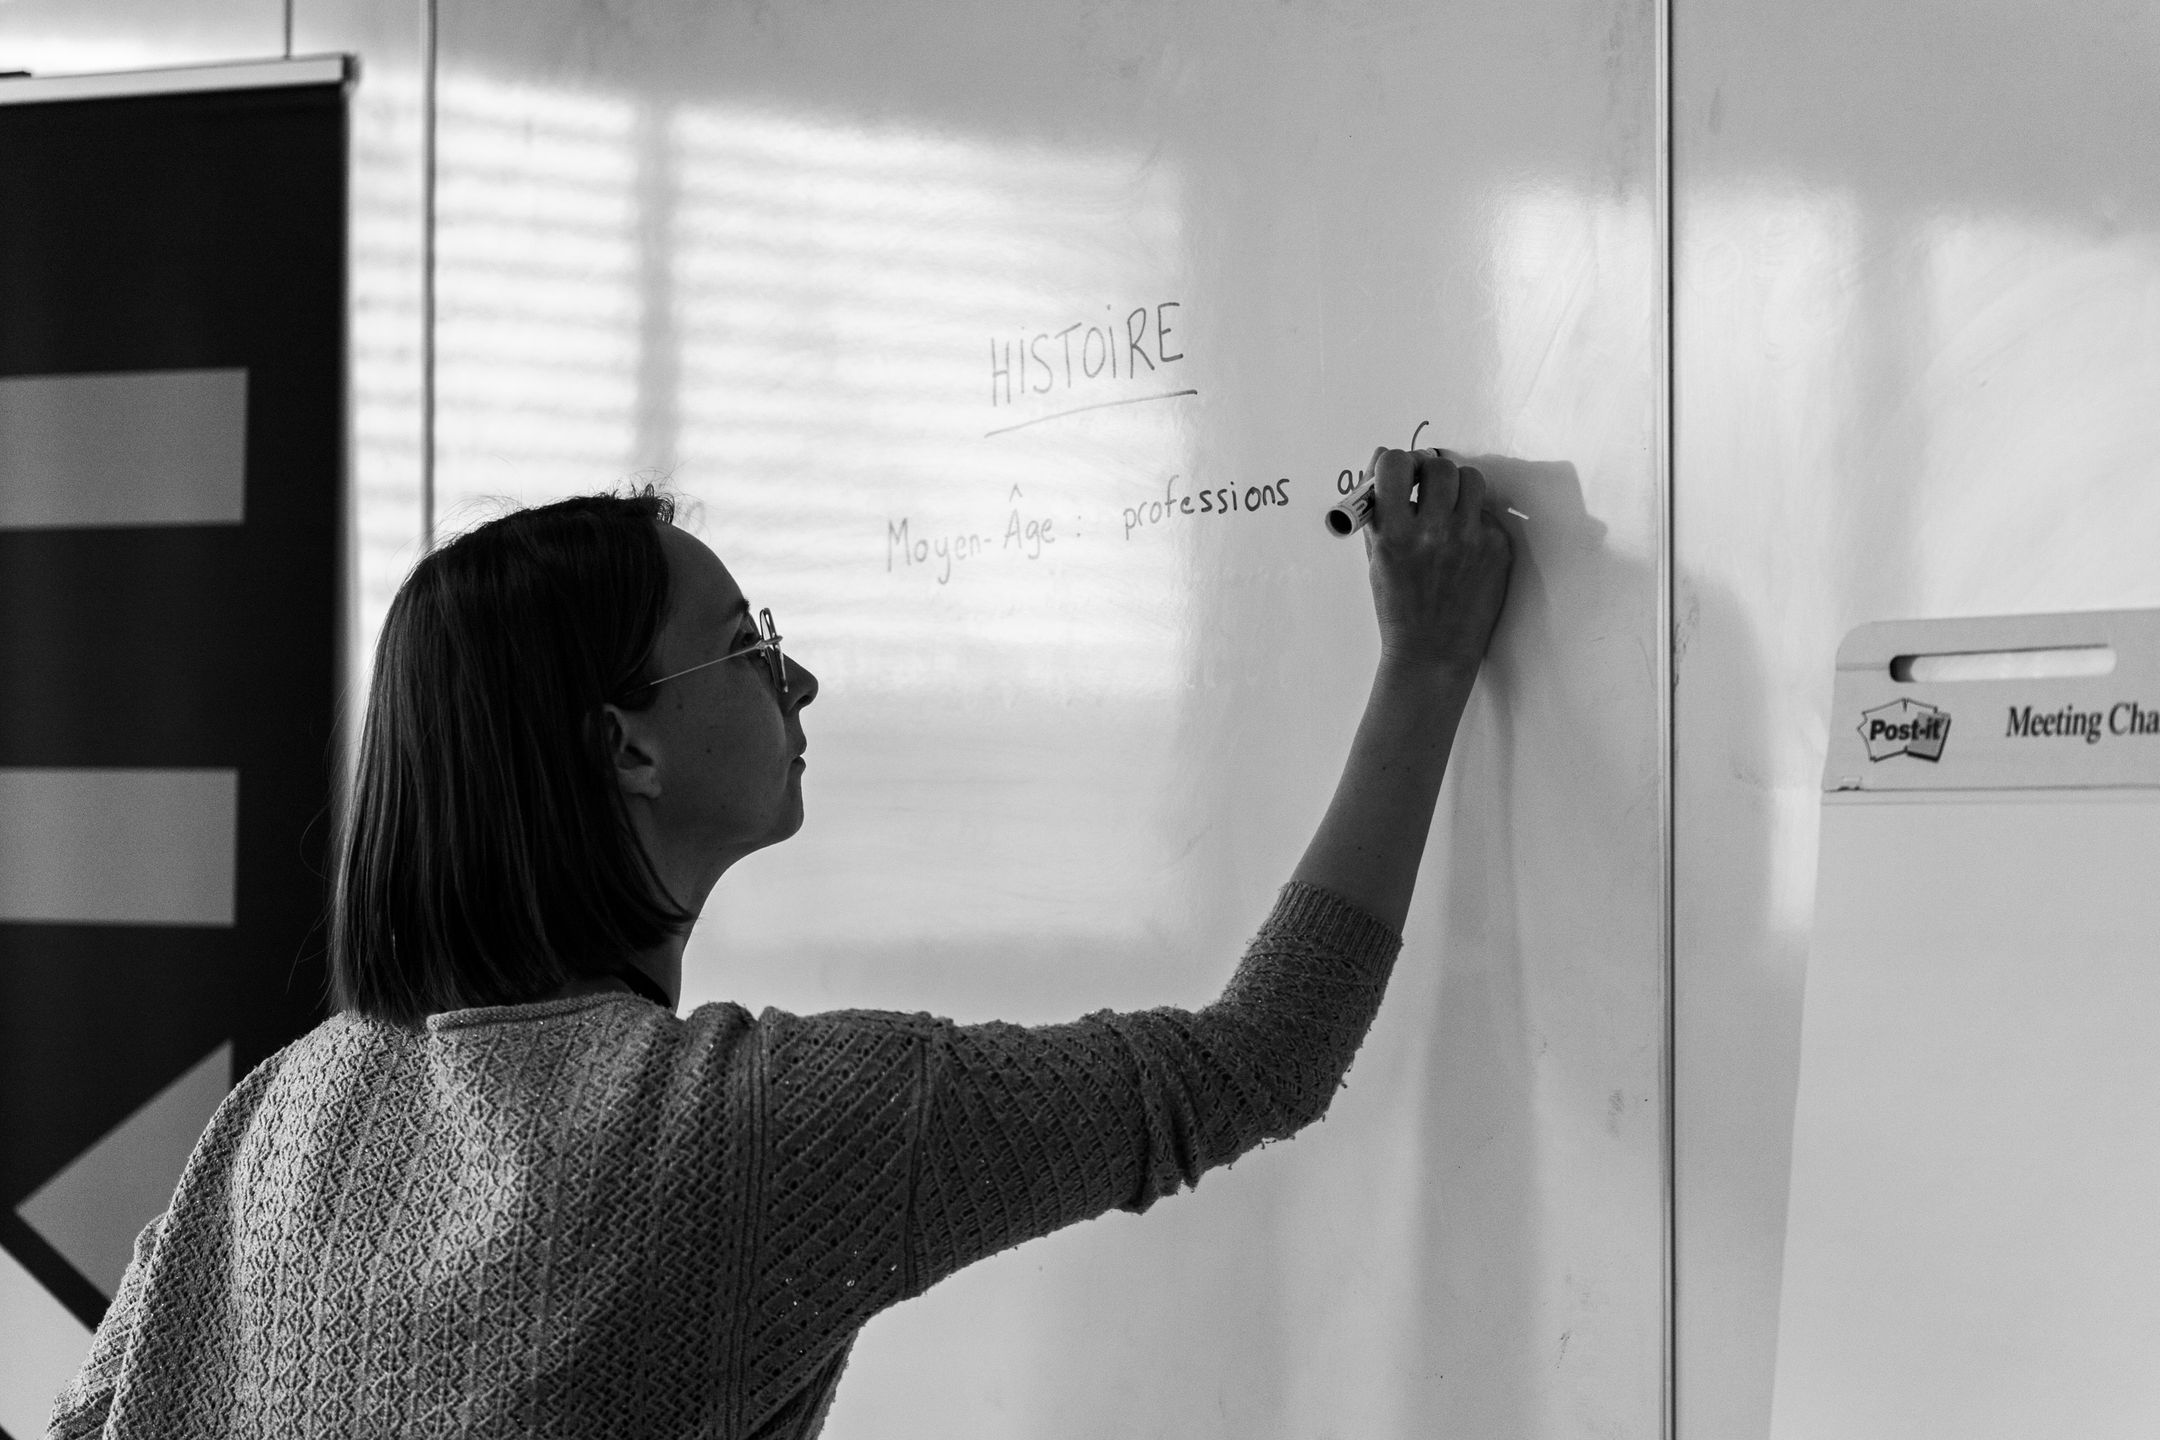 HISTOIRE
Moyen-Âge : professions
Post-it
Meeting